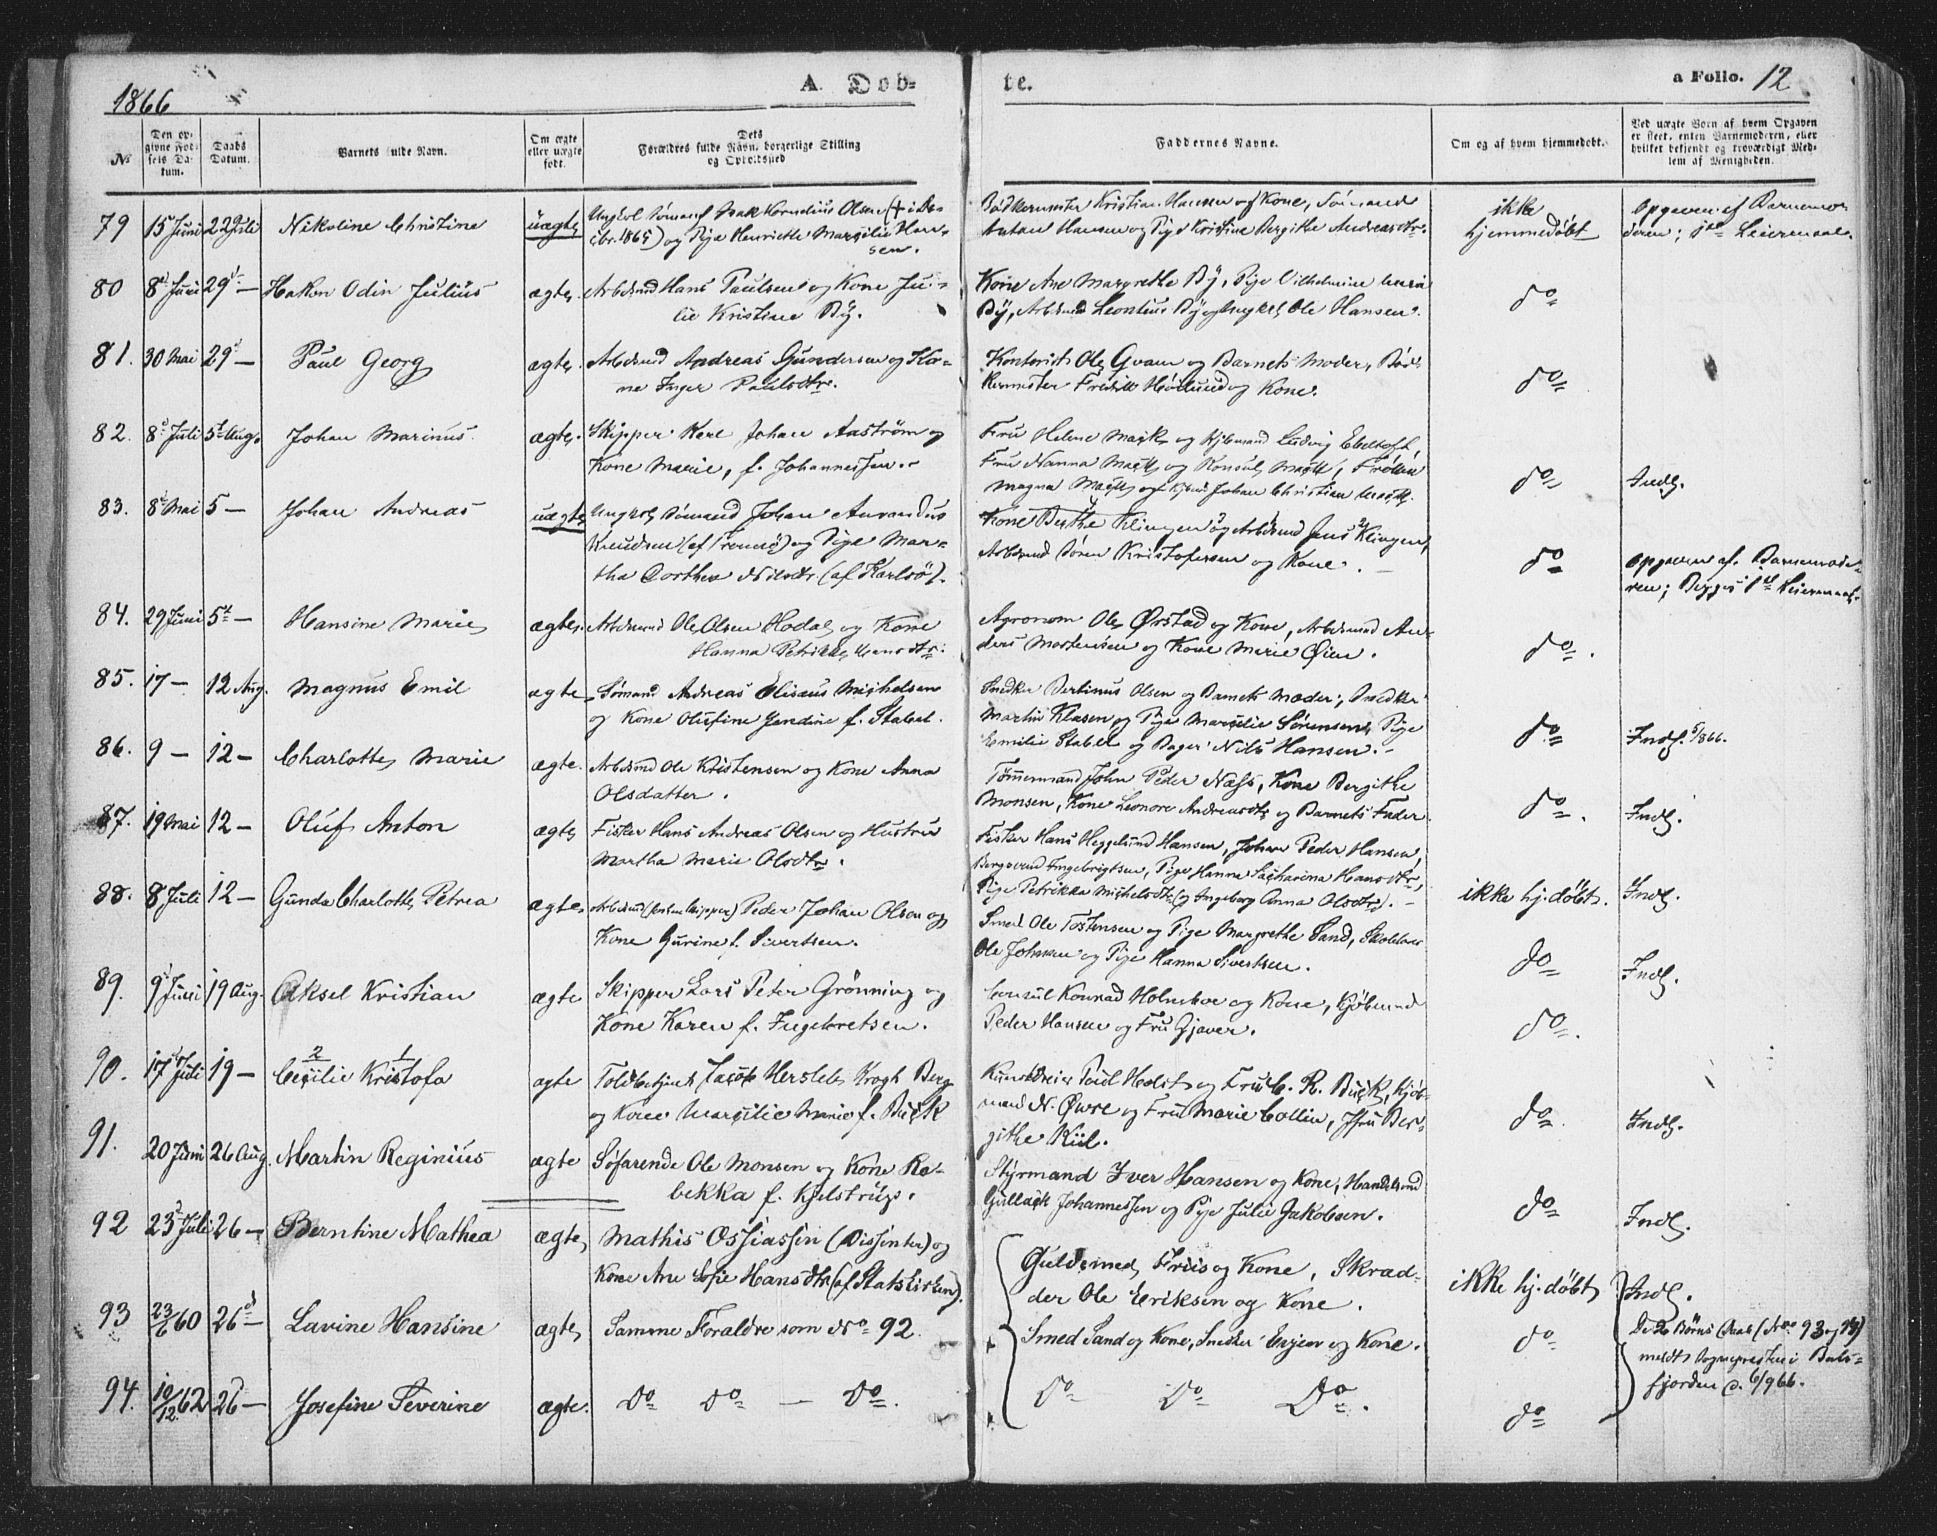 1866
A. Døb-
te.
a Folio. 12
No
Den op-
givne Fød-
sels Da-
tum.
Daabs
Datum.
Barnets fulde Navn.
Om ægte
eller uægte
født.
Dets
Forældres fulde Navn, borgerlige Stilling
og Opholdssted
Faddernes Navne.
Om og af hvem hjemmedøbt.
Ved uægte Børn af hvem Opgaven
er skeet, enten Barnemoderen, eller
hvilket bekjendt og troværdigt Med-
lem af Menigheden.
79 15 Juni 22 Juli Nikoline Christine uægte Ungkarl Sømand Isak Kornelius Olsen († i De-
cbr. 1865) og Pige Henriette Marselie Han-
sen.
Bødkermester Kristian Hansen og Kone, Sømand
Antan Hansen og Pige Kristine Bergithe Andreasdtr.
ikke
hjemmedøbt
Opgaven af Barnemo-
deren; 1ste Leiermaal.
80 8d Juni 29d — Hakon Odin Julius ægte Arbdsmd Hans Paulsen og Kone Ju-
lie Kristine By.
Kone Ane Margrethe By, Pige Vilhelmine Maria
By, Arbdsmd Leontius By og Ole Hansen.
do
81. 30 Mai 29d — Paul Georg ægte Arbdsmd Andreas Gundersen og Ko-
ne Inger Paulsdtr.
Kontorist Ole Qvam og Barnets Moder, Bød-
kermester Fredrik Høilund og Kone.
do
82. 8d Juli 5t Aug. Johan Marinus ægte. Skipper Karl Johan Aaström og
Kone Marie, f. Johannesen.
Fru Helene Mack og Kjbmand Ludvig Ebeltoft,
Fru Nanna Mack og Konsul Mack, Frøken
Magna Mack og Kjbmd Johan Christian Mack.
do
Indl.
83. 8d Mai 5 — Johan Andreas uægte Ungkarl Sømand Johan Amandus
Knudsen (af Tromsø) og Pige Mar-
tha Dorthea Nilsdtr (af Karlsø).
Kone Berthe Klingen og Arbdsmd Jens Klingen,
Arbdsmd Sören Kristofersen og Kone. —
do
Opgaven af Barnemode-
ren; Begges 1ste Leiermaal.
84. 29 Juni 5t — Hansine Marie ægte. Arbdsmd Ole Olsen Hodal og Kone
Hanna Petrikke Hansdtr.
Agronom Ole Ørstad og Kone, Arbdsmd An-
ders Mortensen og Kone Marie Øien.
do
85. 17 — 12 Aug. Magnus Emil ægte Sömand Andreas Elisæus Michelsen
og Kone Olufine Jendine f. Stabel.
Snedker Bertinus Olsen og Barnets Moder, Snedker
Martin Klasen og Pige Marselie Sörensen, Pige
Emilie Stabel og Bager Nils Hansen. —
do
Indl. 5/866.
86. 9 — 12 — Charlotte Marie ægte. Arbdsmd Ole Kristensen og Kone Anna
Olsdatter.
Tømmermand John Peder Næss, Kone Bergithe
Monsen, Kone Leonore Andreasdtr og Barnets Fader.
do
Indl.
87. 19 Mai 12 — Oluf Anton ægte Fisker Hans Andreas Olsen og Hustru
Martha Marie Olsdtr.
Fisker Hans Heggelund Hansen, Johan Peder Hansen,
Ingebrigtsen, Pige Hanna Zacharina Hansdtr,
Pige Petrikka Michelsdtr og Ingeborg Anna Olsdtr. —
ikke hj. döbt.
Indl.
88. 8 Juli 12 — Gunda Charlotte Petrea ægte Arbdsmd (forhen Skipper) Peder Johan Olsen og
Kone Gurine f. Sivertsen.
Smed Ole Tostensen og Pige Margrethe Sand,
Ole Johnsen og Pige Hanna Sivertsen.
do
Indl.
89. 9d Juni 19 Aug. Aksel Kristian ægte Skipper Lars Peter Grönning og
Kone Karen f. Ingebretsen.
Consul Konrad Holmboe og Kone, Kjöbmand
Peder Hansen og Fru Gjæver.
do
90. 17d Juli 19 — Cecilie Kristofa ægte Toldbetjent Jacob Hersleb Krogh Berg
og Kone Marcelie Marie f. Buck
Paul Holst og Fru C. R. Buck, Kjöb-
mand N. Øwre og Fru Marie Collin, Jfru Ber-
githe Kiil.
do
Indl.
91. 20 Juni 26 Aug. Martin Reginius ægte Söfarende Ole Monsen og Kone Re-
bekka f. Kjelstrup.
Styrmand Iver Hansen og Kone, Handelsmd
Gullack Johannessen og Pige Julie Jakobsen.
do
Indl.
92 23d Juli 26 — Berntine Mathea ægte Mathis Ossiassen (Dissenter) og
Kone Ane Sofie Hansdtr (af Statskirken).
Guldsmed Friis og Kone, Skræd-
der Ole Eriksen og Kone.
ikke hj. döbt
Indl.
93 23/6 60 26d — Lavine Hansine ægte Samme Foraldre som No 92.
Smed Sand og Kone, Snedker Evjen og Kone.
do
De 2 Börns Daab (No 93 og 94)
meldt Sognepresten i Bals-
fjorden d. 6/9 66.
94. 10/12 62 26d — Josefine Severine ægte. Do Do — Do.
Do Do Do.
do